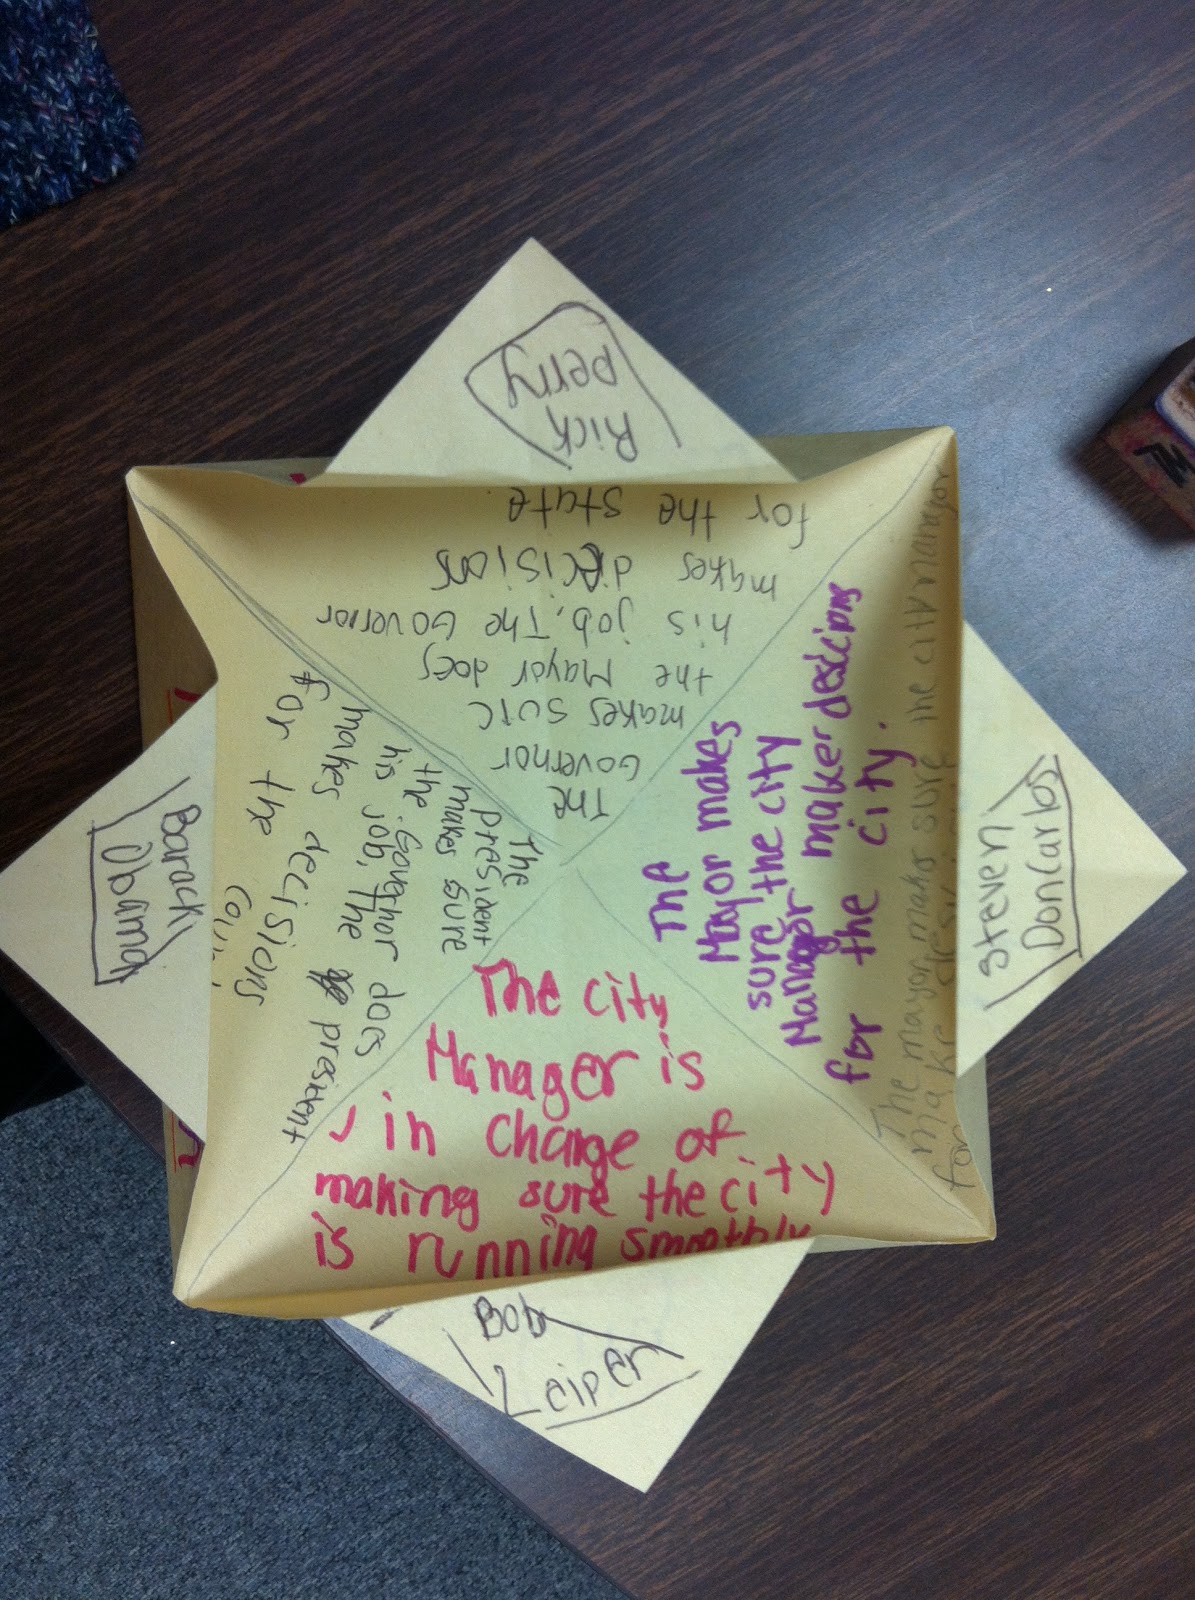 Rick
Perry
The
Governor
makes sure
the Mayor does
his job, The Governor
makes decisions
for the state
Barack
Obama
The
president
makes sure
the Govenor does
his job, the president
makes decisions
for the
Steven
DonCarlos
The
Mayor makes
sure the city
Manager maker descicions
for the city.
The mayor make sure the city manager
make
for
The city
Manager is
in charge of
making sure the city
is running smoothly
Bob
Leiper